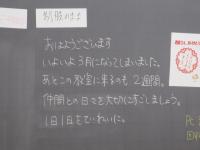 おはようございます
いよいよ3月になってしまいました。
あとこの教室に来るのも2週間。
仲間との日々を大切にすごしましょう。
1日1日をていねいに。